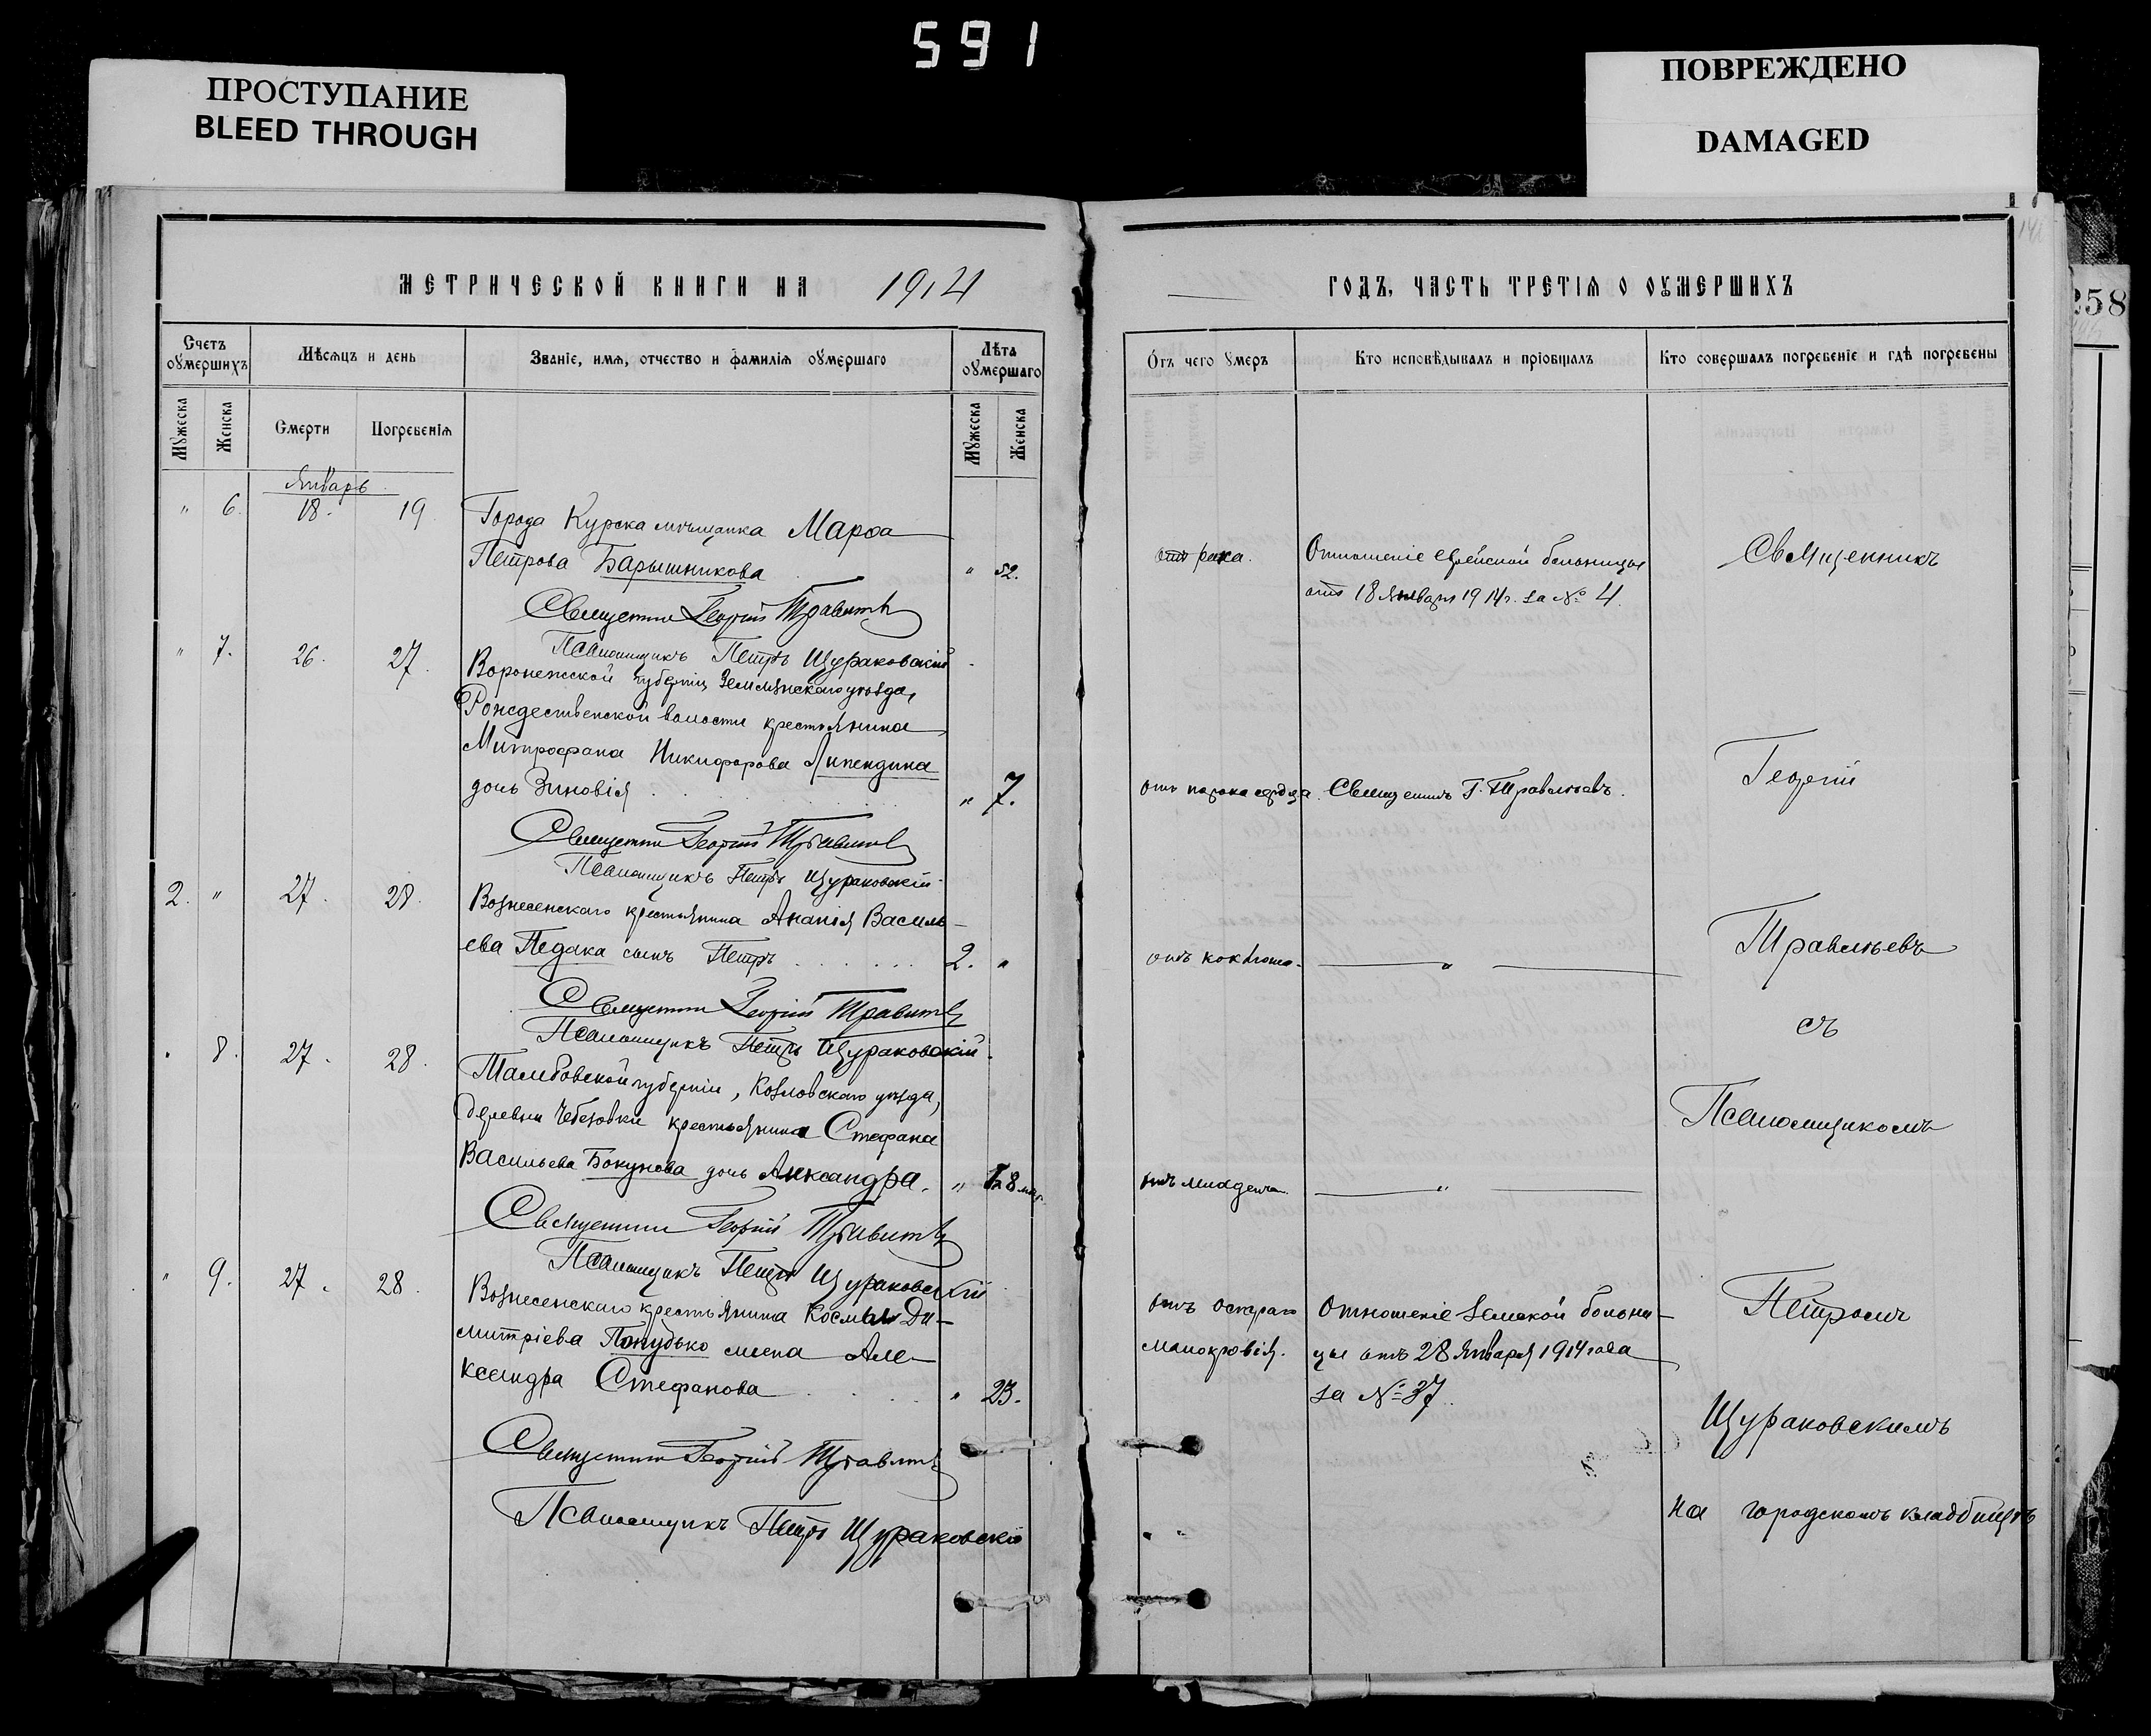 591
ПРОСТУПАНИЕ
BLEED THROUGH
ПОВРЕЖДЕНО
DAMAGED
258
МЕТРИЧЕСКОЙ КНИГИ НА 1914
ГОДЪ, ЧАСТЬ ТРЕТІЯ О ОУМЕРШИХЪ
Счетъ оумершихъ
Мѣсяцъ и день
Званіе, имя, отчество и фамилія оумершаго
Лѣта оумершаго
Мужеска
Женска
Смерти
Погребенія
Мужеска
Женска
Отъ чего умеръ
Кто исповѣдывалъ и пріобщалъ
Кто совершалъ погребеніе и гдѣ погребены
Январь
" 6. 18. 19
Города Курска мѣщанка Марѳа
Петрова Барышникова " 52.
отъ рака.
Отношеніе Еврейской больницы
отъ 18 Января 1914 г. за № 4.
Священникъ Георгій Травльевъ
Псаломщикъ Петръ Щураковскій
" 7. 26. 27.
Воронежской губерніи Землянскаго уѣзда,
Рождественской волости крестьянина
Митрофана Никифорова Липендина
дочь Зиновія " 7.
отъ порока сердца.
Священникъ Г. Травльевъ.
Священникъ Георгій Травльевъ
Псаломщикъ Петръ Щураковскій
2. " 27. 28.
Вознесенскаго крестьянина Ананія Василь-
ева Педака сынъ Петръ 2. "
отъ коклюша. "
Священникъ Георгій Травльевъ
Псаломщикъ Петръ Щураковскій
" 8. 27. 28.
Тамбовской губерніи, Козловскаго уѣзда,
деревни крестьянина Стефана
Васильева Бокунова дочь Александра. " 8 мѣс.
отъ младенч. "
Священникъ Георгій Травльевъ
Псаломщикъ Петръ Щураковскій
" 9. 27. 28.
Вознесенскаго крестьянина Космы Ди-
митріева жена Але-
ксандра Стефанова " 23.
отъ остраго
малокровія.
Отношеніе Земской больни-
цы отъ 28 Января 1914 года
за № 37.
Священникъ Георгій Травльевъ
Псаломщикъ Петръ Щураковскій
Священникъ
Георгій
Травльевъ
съ
Псаломщикомъ
Петромъ
Щураковскимъ
на городскомъ кладбищѣ